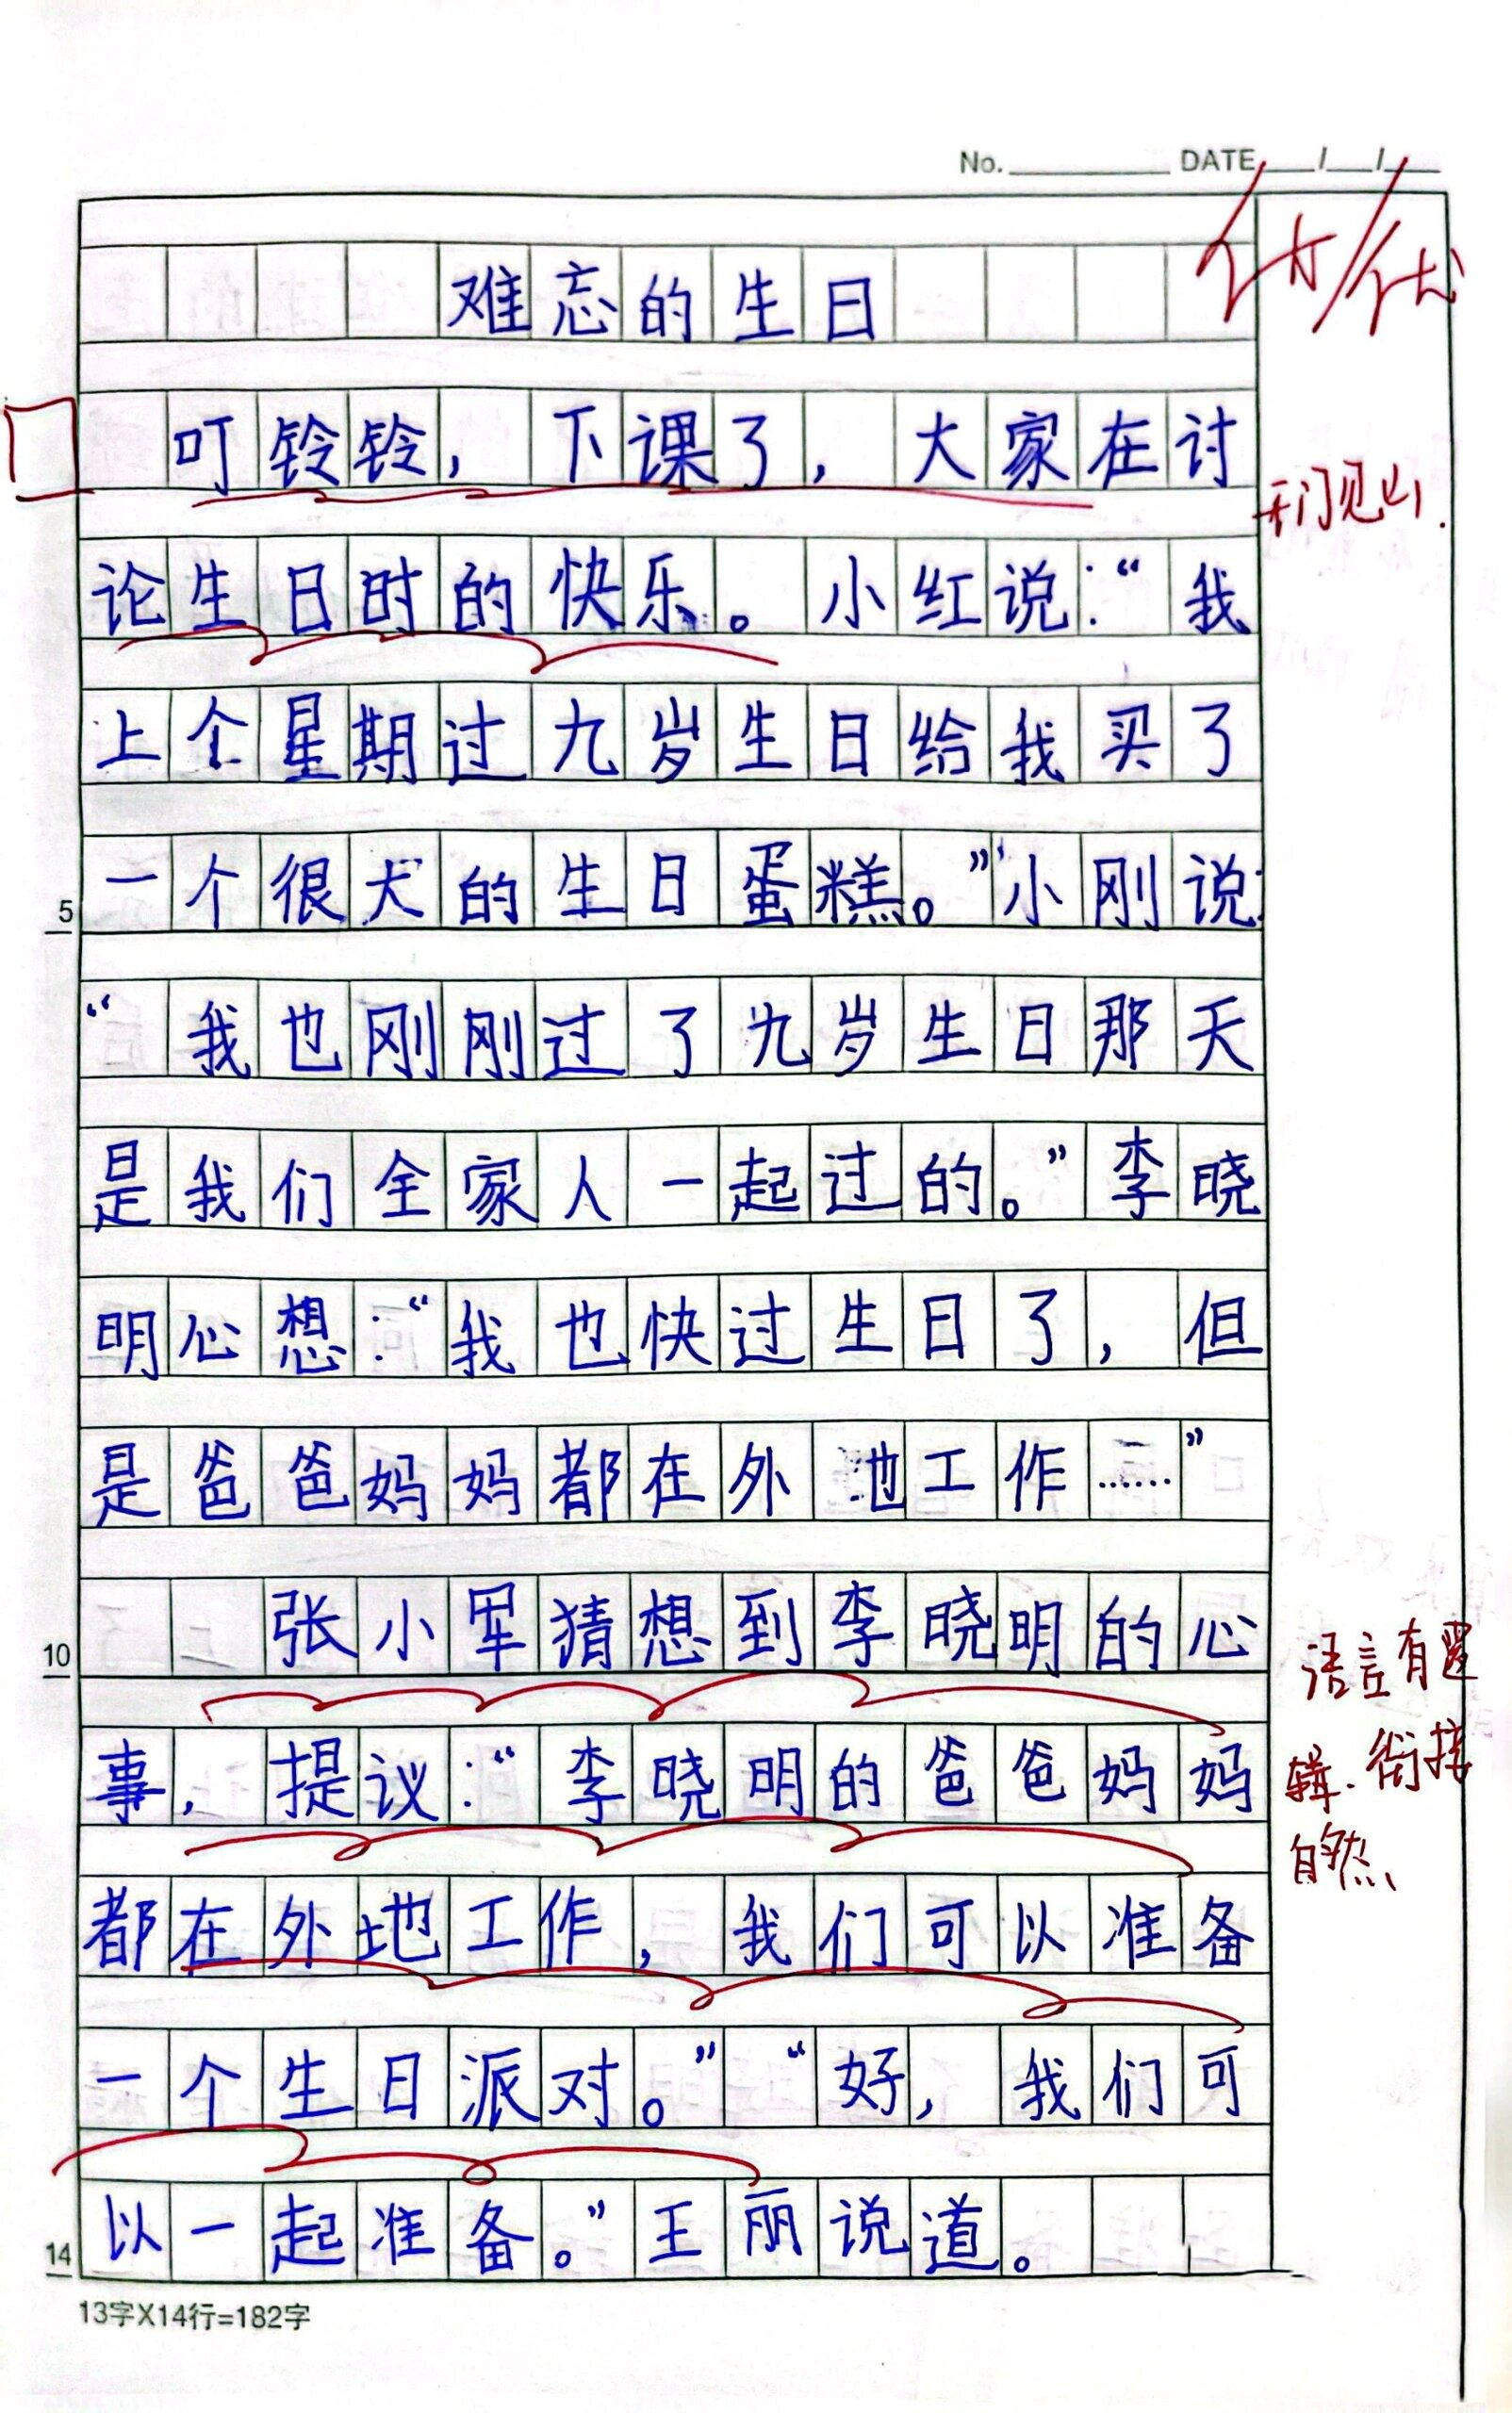 No. DATE / /
优/优
难忘的生日
叮铃铃，下课了，大家在讨
开门见山.
论生日时的快乐。小红说:“我
上个星期过九岁生日给我买了
一个很大的生日蛋糕。”小刚说:
5
“我也刚刚过了九岁生日那天
是我们全家人一起过的。”李晓
明心想:“我也快过生日了，但
是爸爸妈妈都在外地工作……”
张小军猜想到李晓明的心
10
语言有逻
事，提议:“李晓明的爸爸妈妈
辑.衔接
自然、
都在外地工作，我们可以准备
一个生日派对。”“好，我们可
以一起准备。”王丽说道。
14
13字X14行=182字